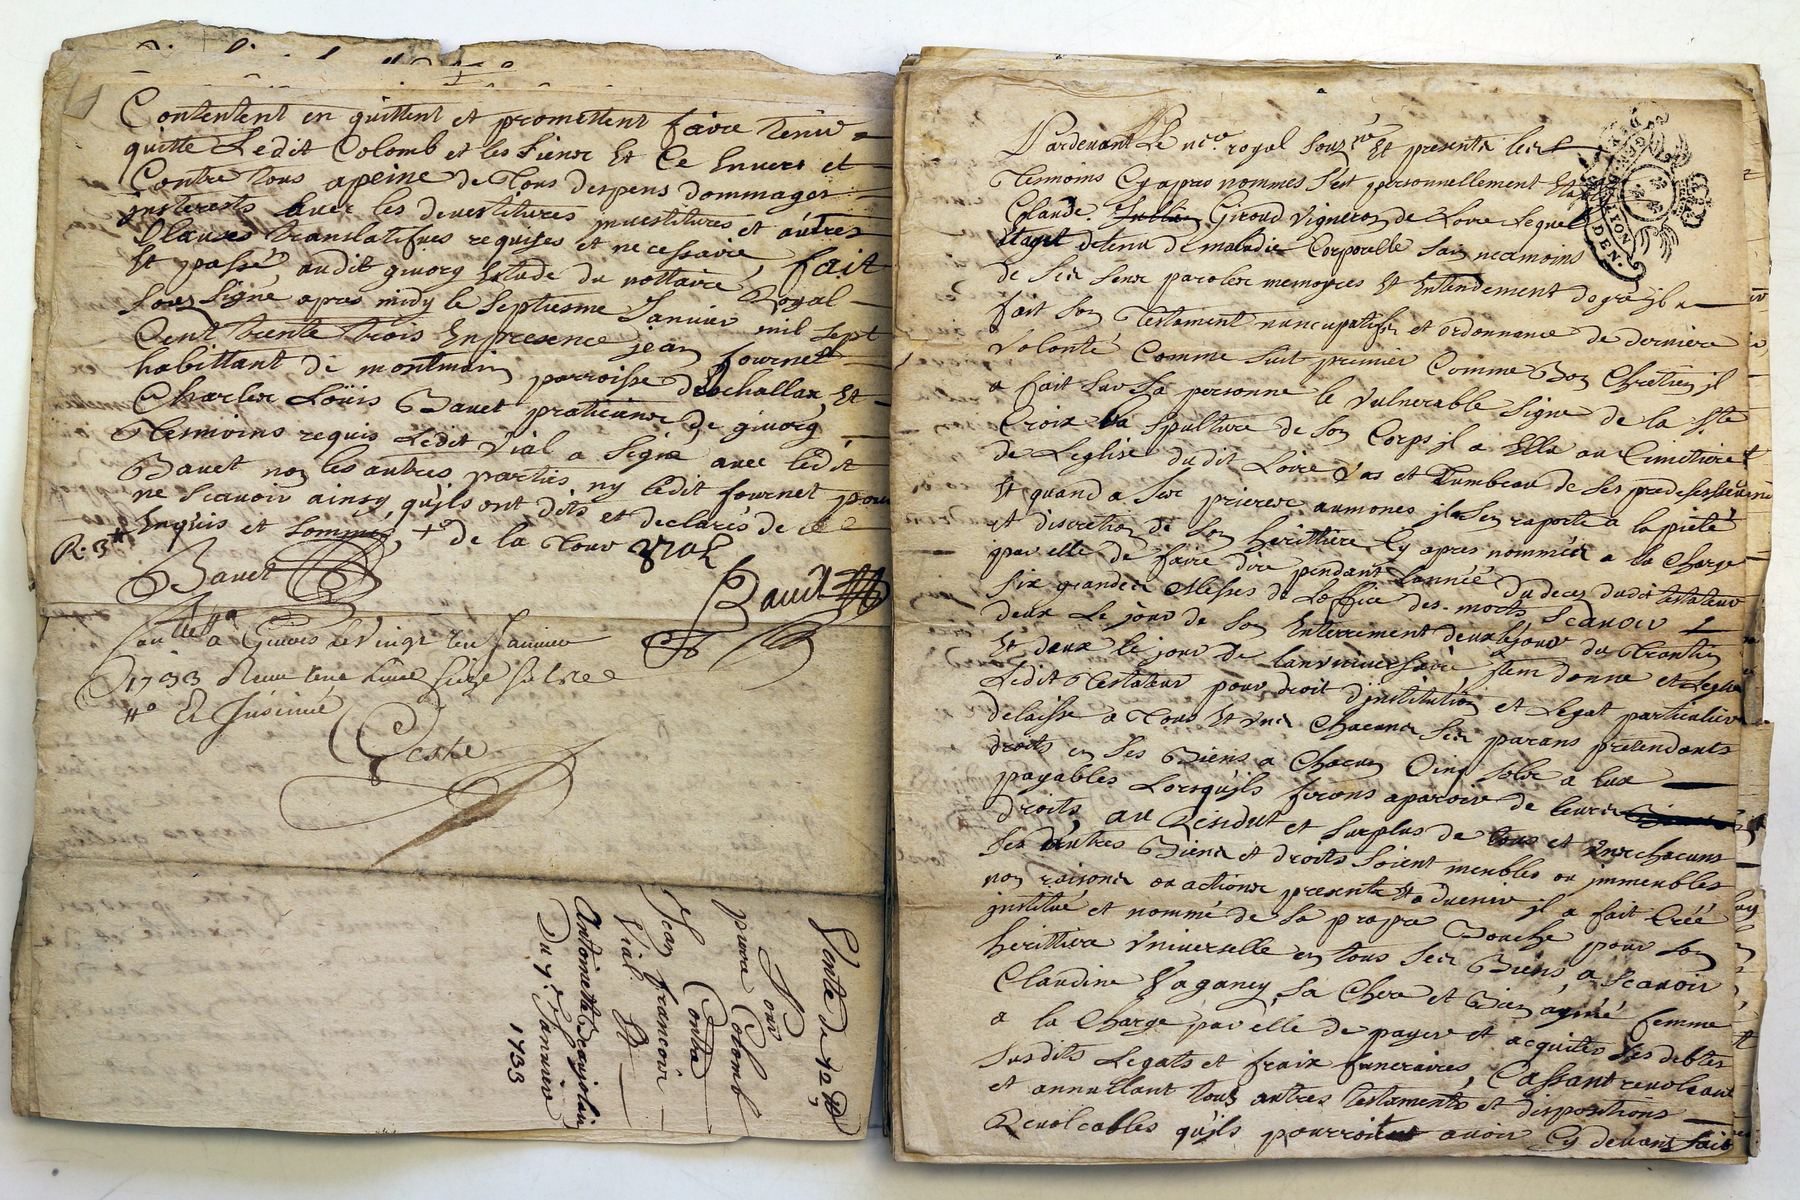 Contentent en quittent et promettent faire tenir
quitte Ledit Colomb et les Siens Et Ce Envers et
Contre tous apeine de Tous despens dommages
jnsterests avec les devestitures jnvestitures et autres
Clauses translatifves requises et necessaire, fait
Et passé audit givorg Estude du nottaire Royal
Sous Signé apres midy le Septiesme Janvier mil Sept
Cent trente trois En presence jean fournet
habittant de montmain parroisse dEchallas Et
Charles Loüis Bavet praticiens de givorg
Tesmoins requis Ledit Vial a Signé avec ledit
Bavet non les autres parties ny ledit fournet pour
ne Scavoir ainsy qu'ils ont dits et declarés de ce
Enquis et sommés, + de la Tour Vial
R: 3tt
Bavet
Bavet
a Givors le Vingt un Janvier
1733 Receu
Et Jnsinué
Coste
Vente de 42tt
Pour
pierre Colomb
Contre
Jean francois
Vial Et
Antoinette Deaujolain
Du 7e. Janvier
1733
Pardevant Le nore. royal Souzné Et presents les
Tesmoins Cy apres nommes S'est personnellement Esta
Claude Giroud Vigneron de Loire Lequel
Etant detenu de maladie Corporelle Sain neamoins
de Ses Sens paroles memoyres Et Entendement de gré jl a
fait Son Testament nuncupatifs et ordonnance de derniere
Volonté Comme Suit premier Comme Bon Chretien jl
a fait Sur Sa personne le Vulnerable Signe de la Ste
Croix La Spulture de Son Corps jl a Ellu au Cimetiere
de Leglise dudit Loire Vas et Tumbeau de Ses predesesseurs
Et quand a Ses prieres aumones jl Sen raporte a la pieté
et discretion de Son heritiere Cy apres nommée a la Charge
par elle de faire dire pendant Lannéé du deces dudit testateur
Six grandes Messes de Loffice des morts Scavoir
deux Le jour de Son Enterrement deux le jour du Trantin
Et deux le jour de Lanniversaire jtem donne et Legue
Ledit Testateur pour droit d'institution et Legat particulier
delaisse a Tous Et Uns Chacuns Ses parans pretendants
droits en Ses Biens a Chacun Cinq Sols a Eux
payables Lorsqu'ils feront aparoir de leurs
droits, au Residut et Surplus de tous et Uns Chacuns
Ses autres Biens et droits Soient meubles ou jmmeubles
non raisons ou actions presents Et advenir jl a fait Créé
jnstitué et nommé de Sa propre Bouche pour Son
heritiere Universelle en tous Ses Biens a Scavoir
Claudine Vaganey, Sa Chere et Bien aymé femme
a la Charge par elle de payer et acquiter Ses debtes
Susdits Legats et fraix funeraires, Cassant revolcant
et annullant tous autres testaments et dispositions
Revolcables qu'ils pourroit avoir Cy devant fait